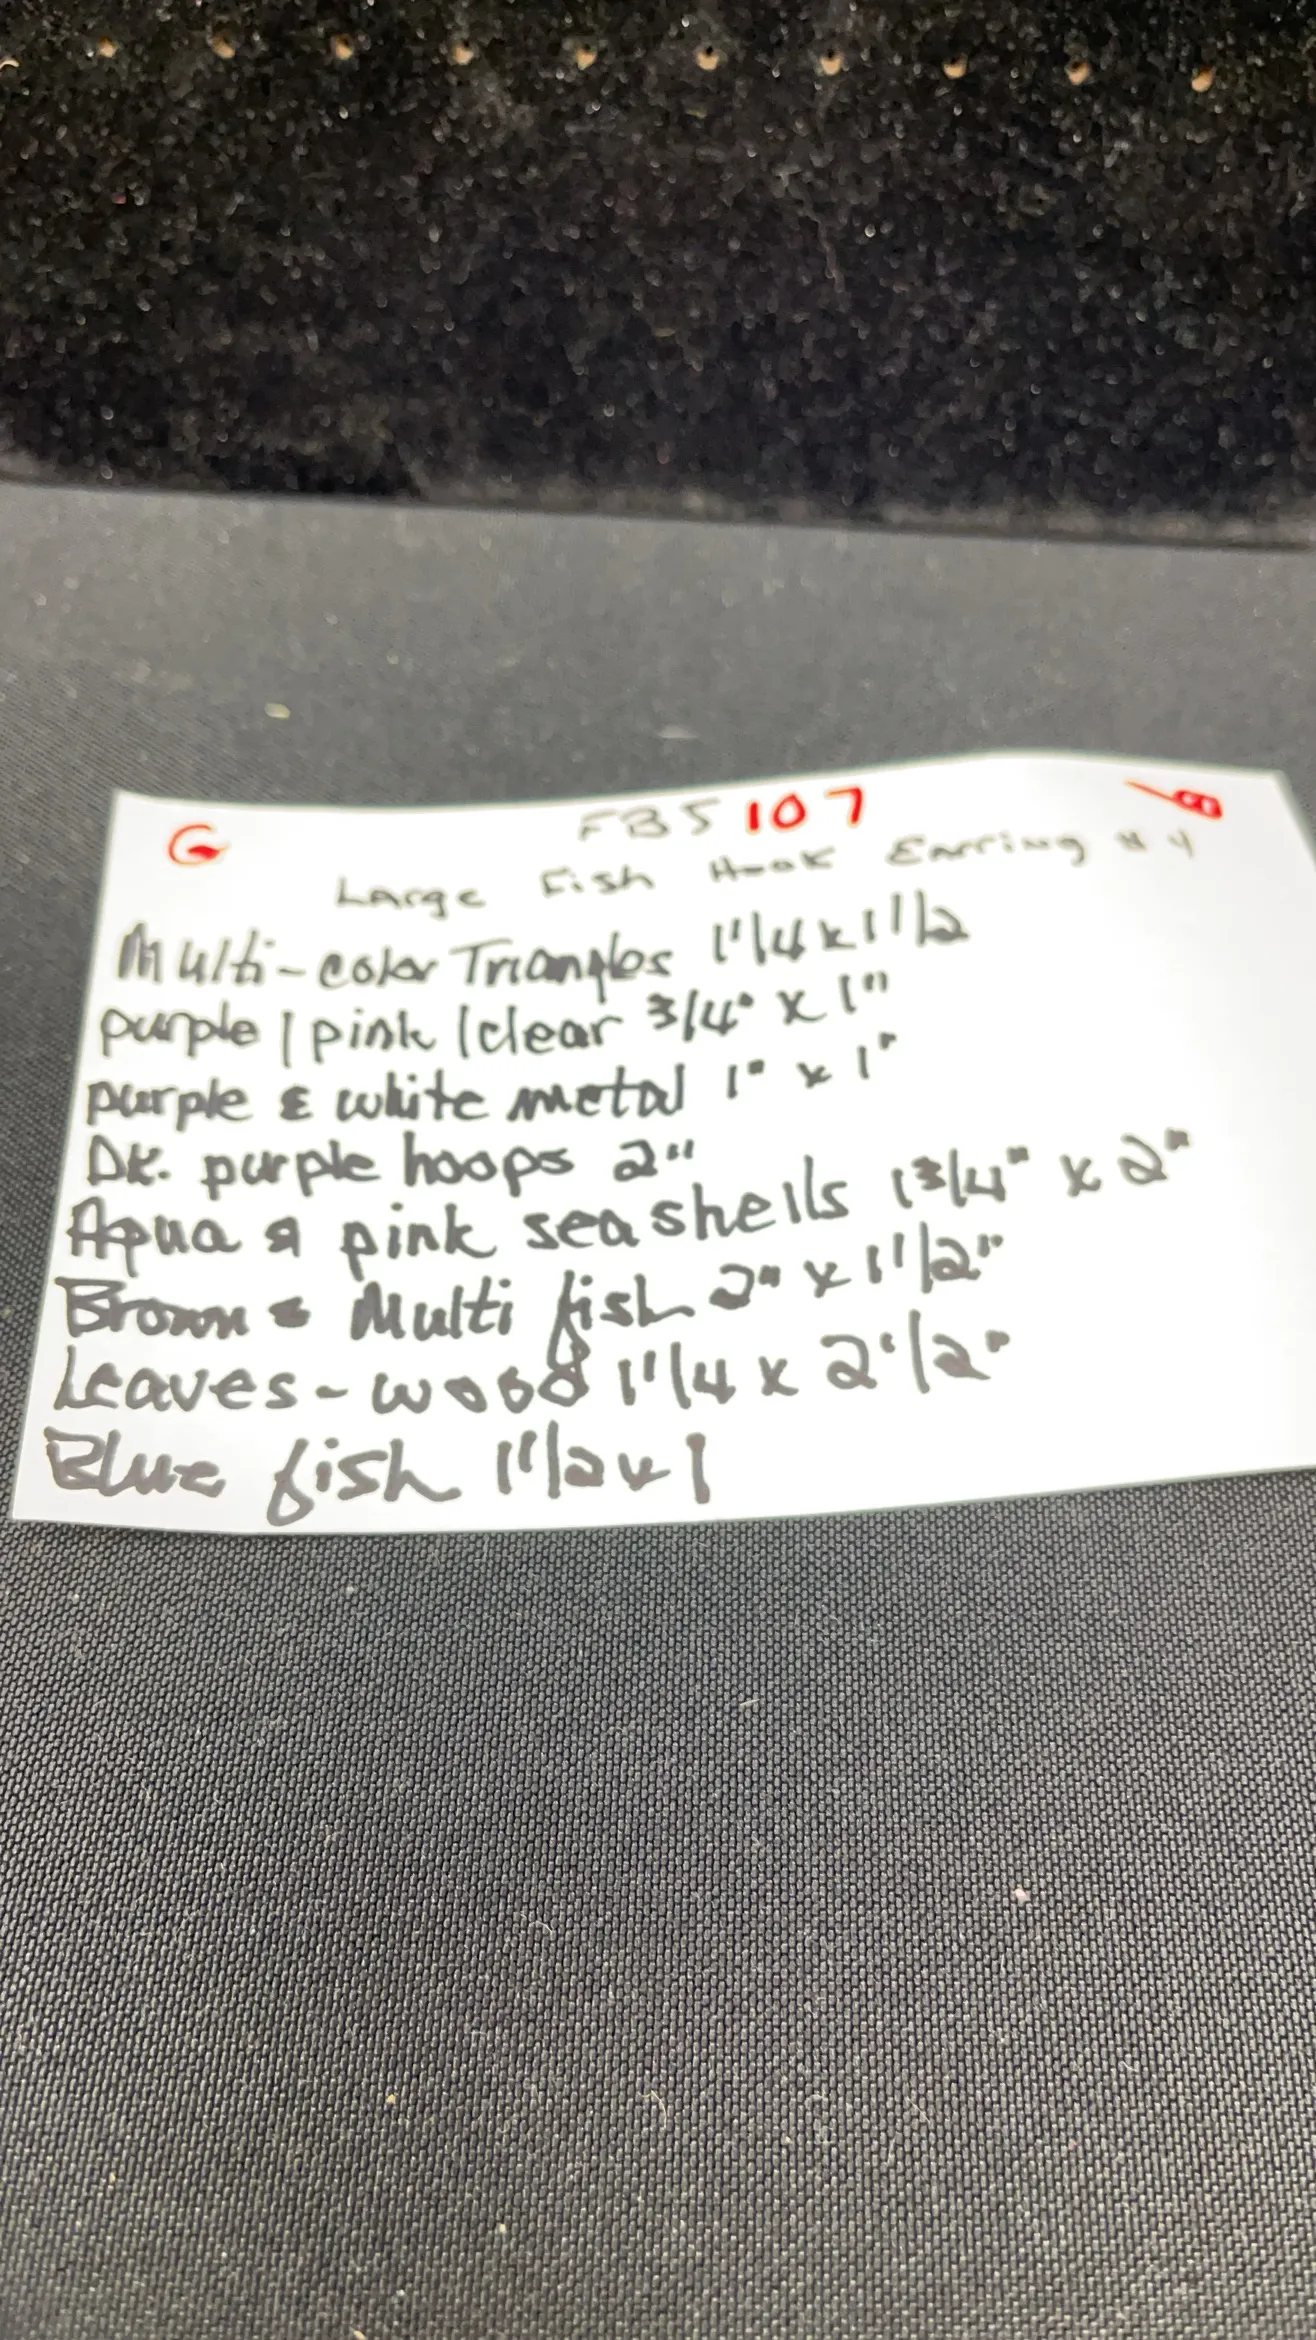 G FB5 107 18
Large Fish Hook Earring #4
Multi-color Triangles 1 1/4 x 1 1/2
purple / pink / clear 3/4" x 1"
purple & white metal 1" x 1"
DK. purple hoops 2"
Aqua & pink sea shells 1 3/4" x 2"
Brown & Multi fish 2" x 1 1/2"
Leaves - wood 1 1/4 x 2 1/2"
Blue fish 1 1/2 x 1